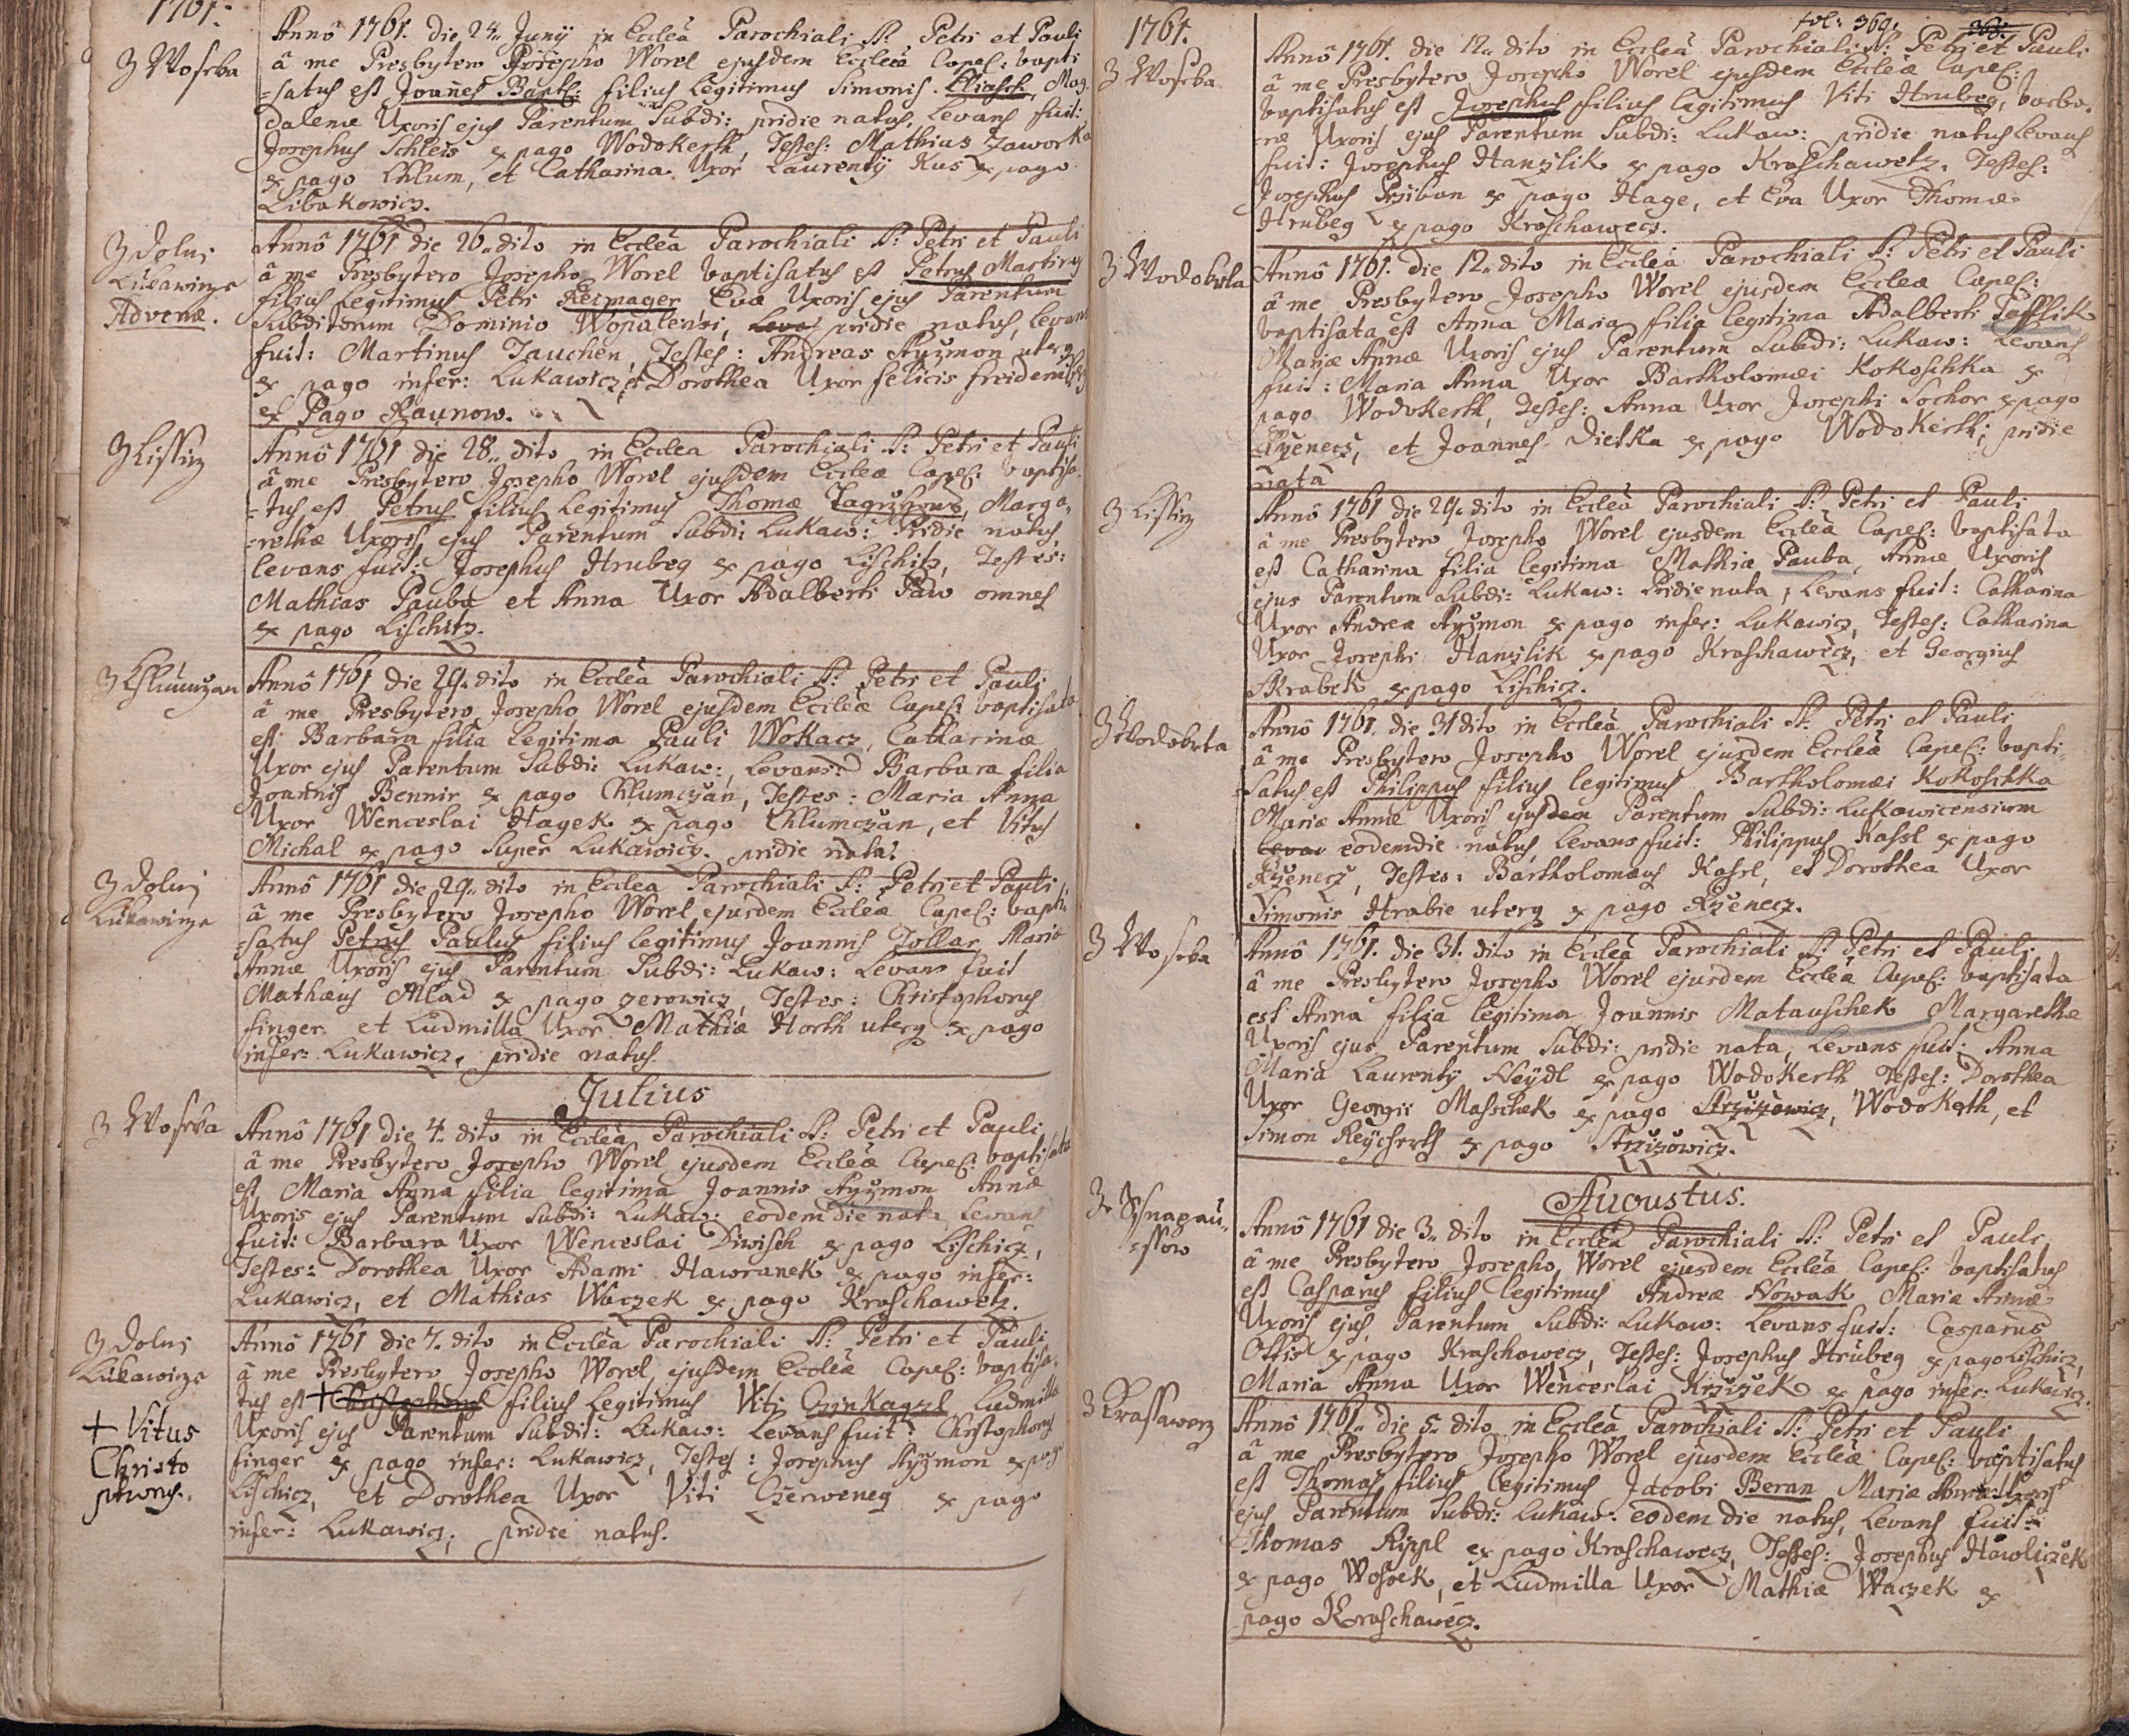 1761.
Z Woseba
Anno 1761. die 24. Junij in Ecclea Parochiali S: Petri et Pauli
â me Presbytero Josepho Worel ejusdem Eccleæ Capel: bapti
=satus est Joañes Bapt: filius Legitimus Simonis Eliasch, Mag
dalenæ Uxoris ejus Parentum Subdi: pridie natus, Levans fuit:
Josephus Schleis ex pago Wodokerth, Testes: Mathias Jaworka
ex pago Chlum, et Catharina Uxor Laurentij Kus ex pago
Libakowicz.
Z Dolnj
Lukawicze
Advenæ.
Anno 1761 die 26. dito in Ecclea Parochiali S: Petri et Pauli
â me Presbytero Josepho Worel baptisatus est Petrus Martinus
filius Legitimus Petri Reimager Evæ Uxoris ejus Parentum
Subditorum Dominio Wopalensi, pridie natus, Levans
fuit: Martinus Tauchen, Testes: Andreas Ayzmon uterq
ex pago infer: Lukawicz, et Dorothea Uxor felicis
ex Pago Raunow.
Z Lissicz
Anno 1761 die 28. dito in Ecclea Parochiali S: Petri et Pauli
â me Presbytero Josepho Worel ejusdem Eccleæ Capel: baptisa
=tus est Petrus filius Legitimus Thomæ, Marga,
=rethæ Uxoris ejus Parentum Subdi: Lukaw: Pridie natus,
Levans fuit: Josephus Hrubeg ex pago Lischitz, Testes:
Mathias Pauba et Anna Uxor Adalberti Paw omnes
ex pago Lischitz.
Z Chlumczan
Anno 1761 die 29. dito in Ecclea Parochiali S: Petri et Pauli
â me Presbytero Josepho Worel ejusdem Eccleæ Capel: baptisata
est Barbara filia Legitima Pauli Wokacz, Catharinæ
Uxor ejus Parentum Subdi: Lukaw:, Levans: Barbara filia
Joannis Bennir ex pago Chlumczan, Testes: Maria Anna
Uxor Wenceslai Hagek ex pago Chlumczan, et Vitus
Michal ex pago Super Lukawicz. pridie nata.
Z Dolnj
Lukawicze
Anno 1761 die 29. dito in Ecclea Parochiali S: Petri et Pauli
â me Presbytero Josepho Worel ejusdem Eccleæ Capel: bapti,
=satus Petrus Paulus filius legitimus Joannis Tollar Mariæ
Annæ Uxoris ejus Parentum Subdi: Lukaw: Levans fuit
Mathæus Mlad ex pago Zerowicz, Testes: Christophorus
finger et Ludmilla Uxor Mathiæ Horth uterq ex pago
infer: Lukawicz, pridie natus.
Julius
Z Woseba
Anno 1761 die 4. dito in Ecclea Parochiali S: Petri et Pauli
â me Presbytero Josepho Worel ejusdem Eccleæ Capel: baptisata
est Maria Anna filia legitima Joannis Ayzmon Annæ
Uxoris ejus Parentum Subdi: Lukaw: eodem die nata, Levans
fuit: Barbara Uxor Wenceslai Diwisch ex pago Lischicz,
Testes: Dorothea Uxor Adami Hawranek ex pago infer:
Lukawicz, et Mathias Waczek ex pago Kraschawetz.
Z Dolnj
Lukawicze
+ Vitus
Christo
phorus.
Anno 1761 die 7. dito in Ecclea Parochiali S: Petri et Pauli
â me Presbytero Josepho Worel ejusdem Eccleæ Capel: baptisa,
tus est + Christophorus filius Legitimus Viti Czinkagzl Ludmilla
Uxoris ejus Parentum Subdit: Lukaw: Levans fuit: Christophorus
finger ex pago infer: Lukawicz, Testes: Josephus Ayzmon ex pago
Lischicz, et Dorothea Uxor Viti Czerweneg ex pago
infer: Lukawicz, pridie natus.
1761.
fol: 369.
Z Woseba
Anno 1761. die 12. dito in Ecclea Parochiali S: Petri et Pauli
â me Presbytero Josepho Worel ejusdem Eccleæ Capel:
baptisatus est Josephus filius legitimus Viti Hrubeg, Barba,
=ræ Uxoris ejus Parentum Subdi: Lukaw: pridie natus Levans
fuit: Josephus Hanzlik ex pago Kraschawetz, Testes:
Josephus Pziban ex pago Hage, et Eva Uxor Thomæ
Hrubeg ex pago Kraschawecz.
Z Wodokrta
Anno 1761. die 12. dito in Ecclea Parochiali S: Petri et Pauli
â me Presbytero Josepho Worel ejusdem Eccleæ Capel:
baptisata est Anna Maria filia legitima Adalberti Safflik
Mariæ Annæ Uxoris ejus Parentum Subdi: Lukaw: Levans
fuit: Maria Anna Uxor Bartholomæi Kokoschka ex
pago Wodokerth, Testes: Anna Uxor Josephi Sochor ex pago
Rzenecz, et Joannes Dietka ex pago Wodokerth, pridie
nata
Z Lissicz
Anno 1761 die 29. dito in Ecclea Parochiali S: Petri et Pauli
â me Presbytero Josepho Worel ejusdem Eccleæ Capel: baptisata
est Catharina filia legitima Mathiæ Pauba, Annæ Uxoris
ejus Parentum Subdi: Lukaw: Pridie nata, Levans fuit: Catharina
Uxor Andreæ Ayzmon ex pago infer: Lukawicz, Testes: Catharina
Uxor Josephi Hanzlik ex pago Kraschawecz, et Georgius
Skrabek ex pago Lischicz.
Z Wodokrta
Anno 1761. die 31 dito in Ecclea Parochiali S: Petri et Pauli
â me Presbytero Josepho Worel ejusdem Eccleæ Capel: bapti,
=satus est Philippus filius legitimus Bartholomæi Kokoschka
Mariæ Annæ Uxoris ejusdem Parentum Subdi: Lukawicensium
eodem die natus, Levans fuit: Philippus Kassl ex pago
Rzenecz, Testes: Bartholomæus Kassl, et Dorothea Uxor
Simonis Hrabie uterq ex pago Rzenecz.
Z Woseba
Anno 1761. die 31. dito in Ecclea Parochiali S: Petri et Pauli
â me Presbytero Josepho Worel ejusdem Eccleæ Capel: baptisata
est Anna filia legitima Joannis Matauschek Margarethæ
Uxoris ejus Parentum Subdi: pridie nata, Levans fuit: Anna
Maria Laurentij Heÿdl ex pago Wodokerth Testes: Dorothea
Uxor Georgii Maschek ex pago Strzizowicz, Wodokrth, et
Simon Reÿcherth ex pago Strzizowicz.
Augustus.
Z Sñapau,
=ssow
Anno 1761 die 3. dito in Ecclea Parochiali S: Petri et Pauli
â me Presbytero Josepho Worel ejusdem Eccleæ Capel: baptisatus
est Casparus filius legitimus Andreæ Nowak Mariæ Annæ
Uxoris ejus Parentum Subdi: Lukaw: Levans fuit: Casparus
Ottis ex pago Kraschawecz, Testes: Josephus Hrubeg ex pago Lischicz,
Maria Anna Uxor Wenceslai Krzizek ex pago infer: Lukawicz.
Z Krassawecz
Anno 1761. die 5. dito in Ecclea Parochiali S: Petri et Pauli
â me Presbytero Josepho Worel ejusdem Eccleæ Capel: baptisatus
est Thomas filius legitimus Jacobi Beran Mariæ Annæ Uxoris
ejus Parentum Subdi: Lukaw: eodem die natus, Levans fuit:
Thomas Rippl ex pago Kraschawecz, Testes: Josephus Hawliczek
ex pago Wosek, et Ludmilla Uxor Mathiæ Waczek ex
pago Kraschawecz.